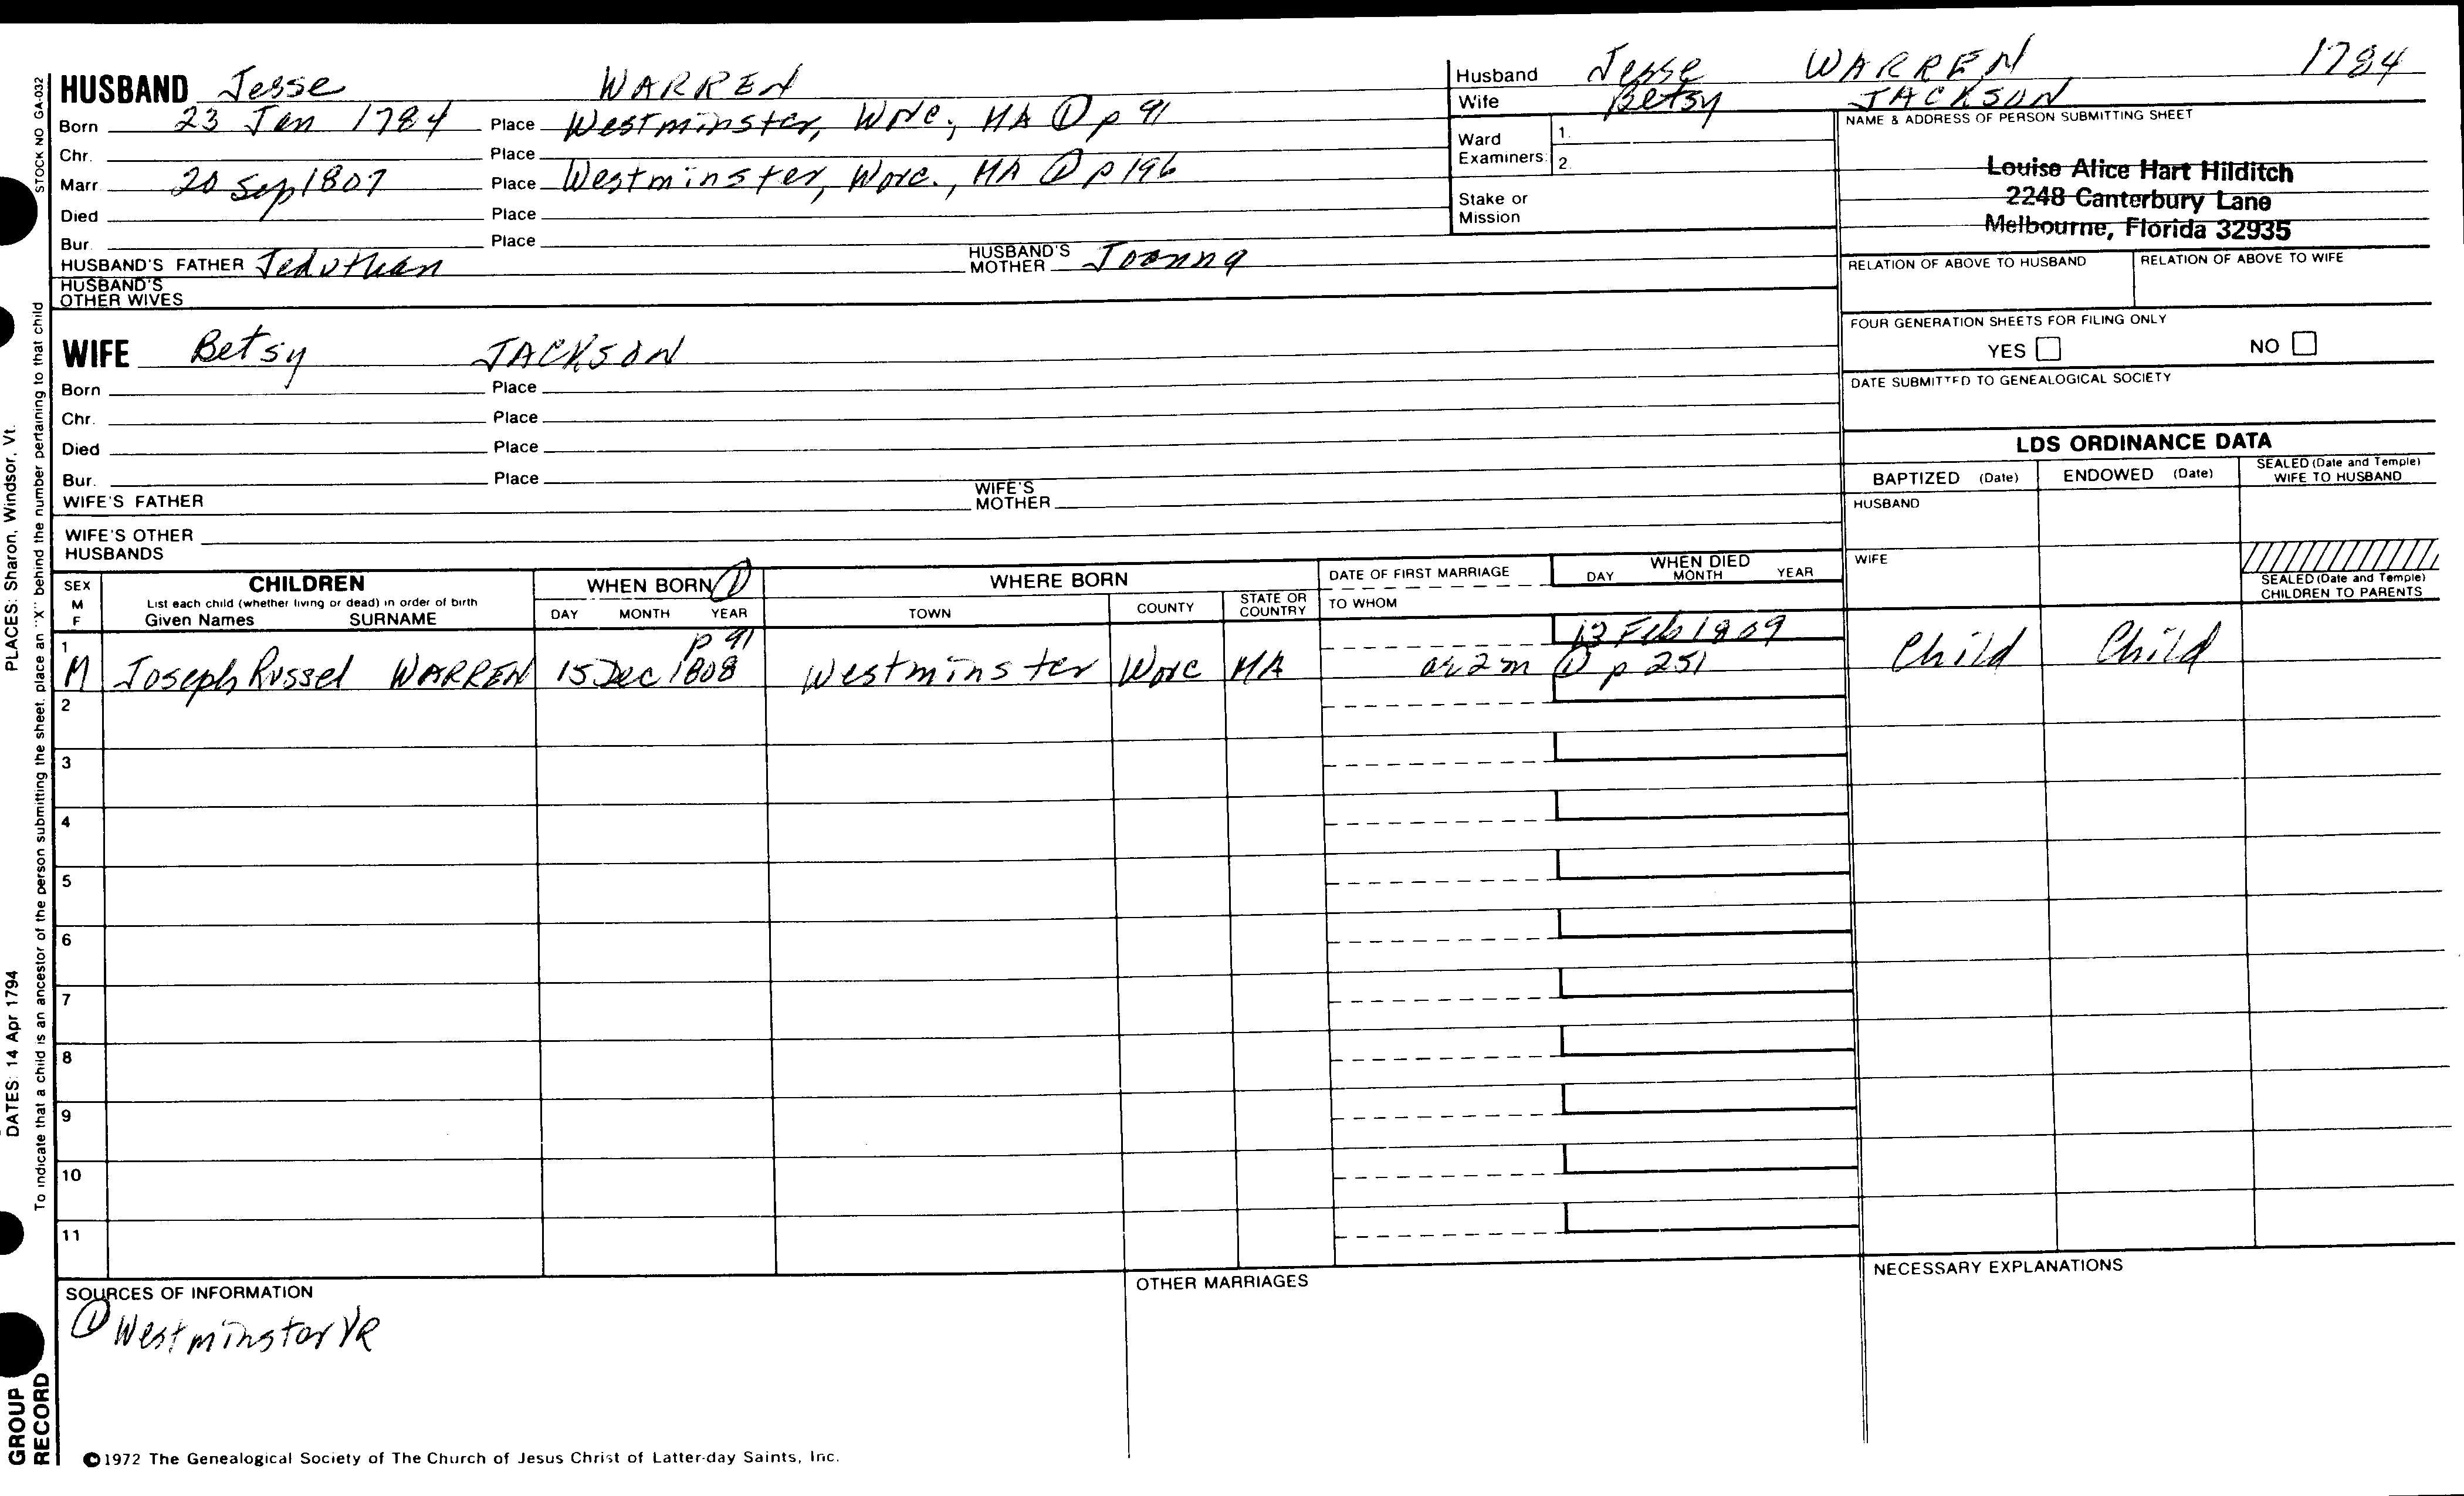 HUSBAND Jesse WARREN
Born 23 Jan 1784 Place Westminster, Worc., MA ① p 91
Chr. Place
Marr. 20 Sep 1807 Place Westminster, Worc., MA ① p 196
Died Place
Bur. Place
HUSBAND'S FATHER Jeduthan HUSBAND'S MOTHER Joanna
HUSBAND'S OTHER WIVES
WIFE Betsy JACKSON
Born Place
Chr. Place
Died Place
Bur. Place
WIFE'S FATHER WIFE'S MOTHER
WIFE'S OTHER HUSBANDS
Husband Jesse WARREN 1784
Wife Betsy JACKSON
Ward Examiners: 1.
2.
Stake or Mission
NAME & ADDRESS OF PERSON SUBMITTING SHEET
Louise Alice Hart Hilditch
2248 Canterbury Lane
Melbourne, Florida 32935
RELATION OF ABOVE TO HUSBAND RELATION OF ABOVE TO WIFE
FOUR GENERATION SHEETS FOR FILING ONLY
YES NO
DATE SUBMITTED TO GENEALOGICAL SOCIETY
LDS ORDINANCE DATA
BAPTIZED (Date) ENDOWED (Date) SEALED (Date and Temple) WIFE TO HUSBAND
HUSBAND
WIFE
SEALED (Date and Temple) CHILDREN TO PARENTS
SEX M F CHILDREN WHEN BORN ① WHERE BORN DATE OF FIRST MARRIAGE WHEN DIED
List each child (whether living or dead) in order of birth DAY MONTH YEAR TOWN COUNTY STATE OR COUNTRY TO WHOM DAY MONTH YEAR
Given Names SURNAME
1 p 91 13 Feb 1809
M Joseph Russel WARREN 15 Dec 1808 Westminster Worc MA ae 2 m ① p 251 Child Child
2
3
4
5
6
7
8
9
10
11
SOURCES OF INFORMATION OTHER MARRIAGES NECESSARY EXPLANATIONS
① Westminster VR
©1972 The Genealogical Society of The Church of Jesus Christ of Latter-day Saints, Inc.
STOCK NO GA-032
To indicate that a child is an ancestor of the person submitting the sheet, place an "X" behind the number pertaining to that child
PLACES: Sharon, Windsor, Vt.
DATES: 14 Apr 1794
GROUP
RECORD